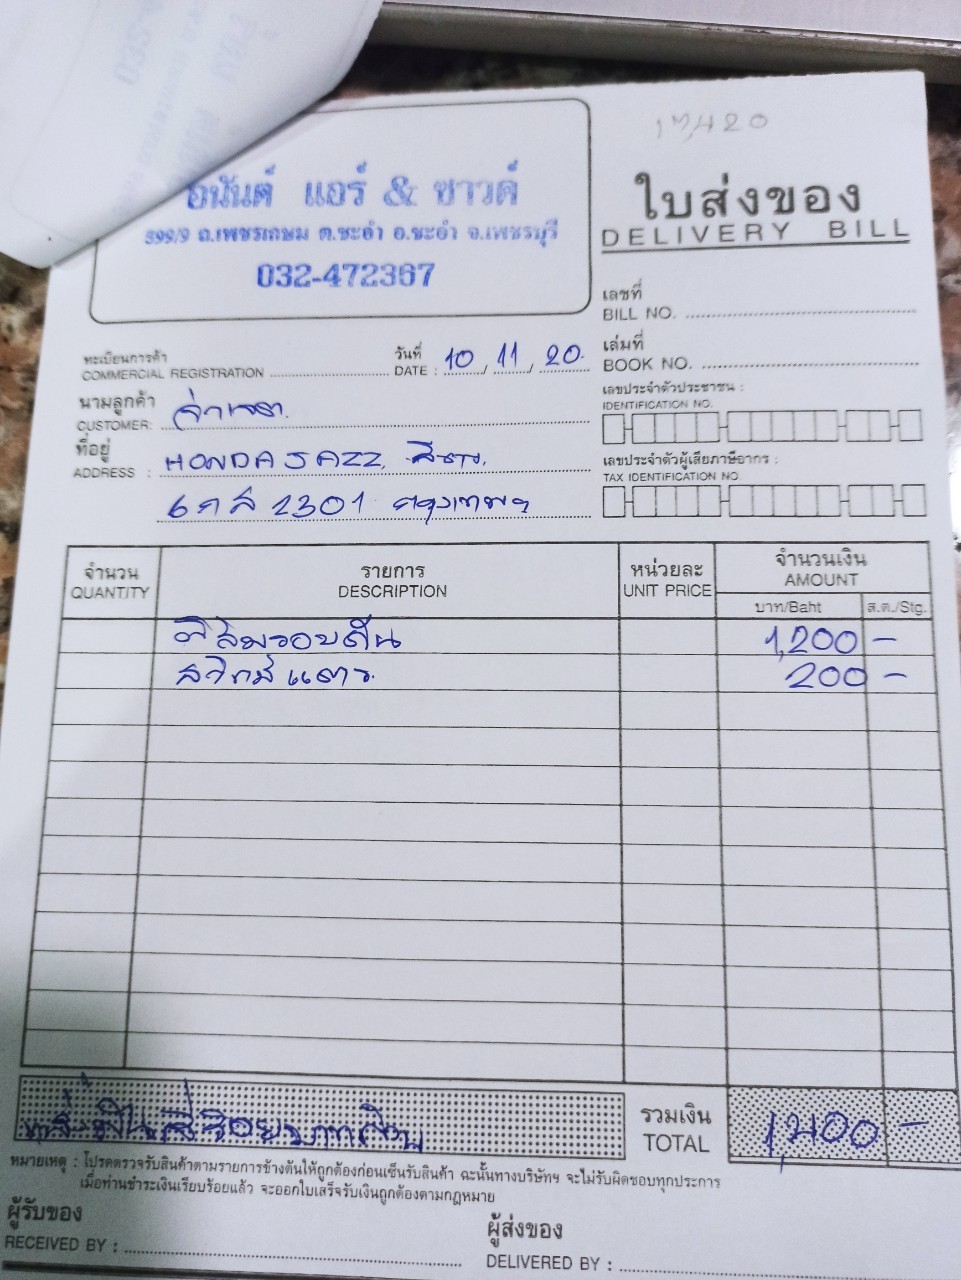 อนันต์ แอร์ & ซาวด์
399/9 ถ.เพชรเกษม ต.ชะอำ อ.ชะอำ จ.เพชรบุรี
032-472367
ใบส่งของ
DELIVERY BILL
เลขที่
BILL NO.
เล่มที่
BOOK NO.
ทะเบียนการค้า
COMMERCIAL REGISTRATION
วันที่
DATE : 10 / 11 / 20.
นามลูกค้า
CUSTOMER:
ที่อยู่
ADDRESS : HONDA JAZZ
6กส 2301 กรุงเทพฯ
เลขประจำตัวประชาชน :
IDENTIFICATION NO.
เลขประจำตัวผู้เสียภาษีอากร :
TAX IDENTIFICATION NO.
จำนวน รายการ หน่วยละ จำนวนเงิน
QUANTITY DESCRIPTION UNIT PRICE AMOUNT
บาท/Baht ส.ต./Stg.
ฟิล์มรอบคัน 1,200 -
สวิทช์แตร 200 -
หนึ่งพันสี่ร้อยบาทถ้วน
รวมเงิน
TOTAL 1,400 -
หมายเหตุ : โปรดตรวจรับสินค้าตามรายการข้างต้นให้ถูกต้องก่อนเซ็นรับสินค้า ฉะนั้นทางบริษัทฯ จะไม่รับผิดชอบทุกประการ
เมื่อท่านชำระเงินเรียบร้อยแล้ว จะออกใบเสร็จรับเงินถูกต้องตามกฎหมาย
ผู้รับของ
RECEIVED BY :
ผู้ส่งของ
DELIVERED BY :